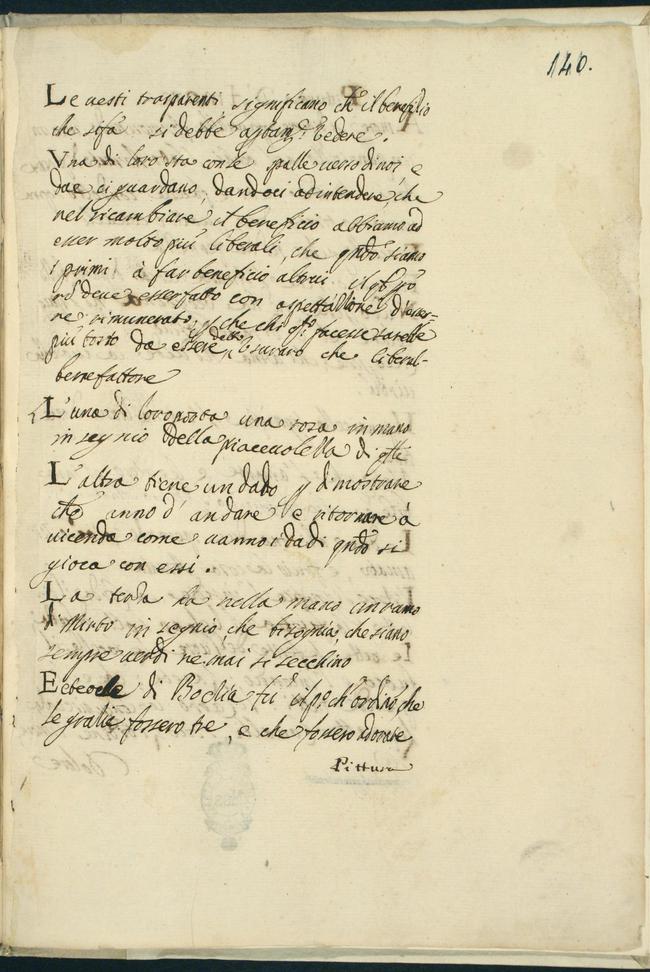 140.
Le uesti trasparenti significano che il benefitio
che si fa si debbe vedere.
Vna di loro sta con le spalle uerso di noi e
due ci guardano, dandoci ad intendere, che
nel ricambiare il beneficio abbiamo ad
esser molto più liberali, che qndo siamo
i primi à far beneficio altrui, il
deue esser fatto con aspettatione d'esser-
ne rimunerato, che chi qto facesse sarebbe
più tosto da essere detto Usuraro che liberal-
benefattore
L'una di loro porta una rosa in mano
in segnio della piaceuolella di qste
L'altra tiene un dado p dimostrare
che anno d'andare e ritornare à
uicenda come uanno i dadi qndo si
gioca con essi.
La terza ha nella mano un ramo
di Mirto in segnio, che bisognia, che siano
sempre uerdi ne mai si secchino
Ecteocle di Boetia fù il po ch'ordinò, che
le gratie fossero tre, e che fossero adorate
Pittura